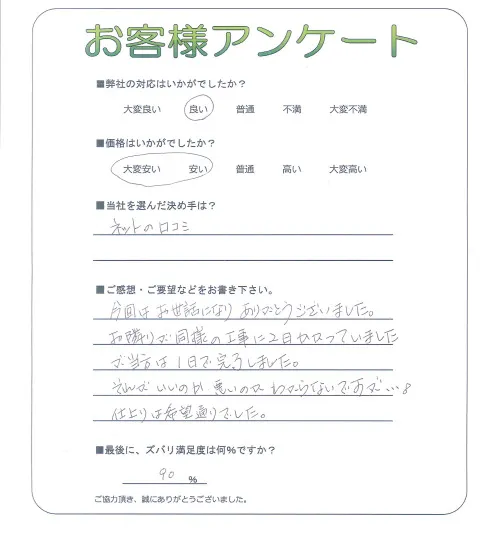 お客様アンケート
■弊社の対応はいかがでしたか？
大変良い 良い 普通 不満 大変不満
■価格はいかがでしたか？
大変安い 安い 普通 高い 大変高い
■当社を選んだ決め手は？
ネットの口コミ
■ご感想・ご要望などをお書き下さい。
今回はお世話になりありがとうございました。
お隣りが同様の工事に2日かかっていました
が当方は1日で完了しました。
それがいいのか悪いのかわからないですが…。
仕上りは希望通りでした。
■最後に、ズバリ満足度は何%ですか？
90 %
ご協力頂き、誠にありがとうございました。